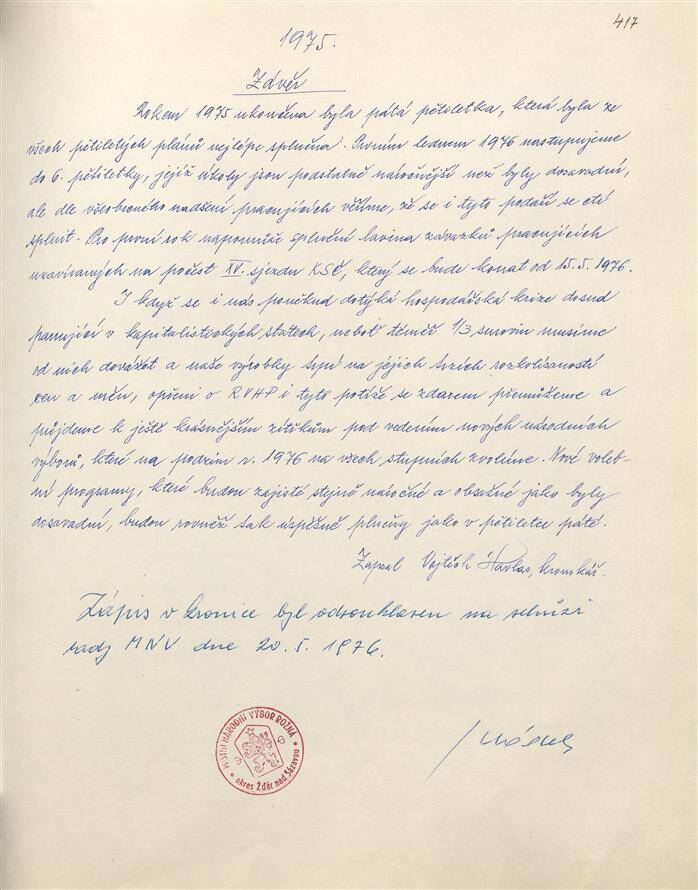 417
1975.
Závěr
Rokem 1975 ukončena byla pátá pětiletka, která byla ze
všech pětiletých plánů nejlépe splněna. Prvním lednem 1976 nastupujeme
do 6. pětiletky, jejíž úkoly jsou podstatně náročnější než byly dosavadní,
ale dle všeobecného nadšení pracujících věříme, že se i tyto podaří se ctí
splnit. Pro první rok napomůže splnění lavina závazků pracujících
uzavíraných na počest XV. sjezdu KSČ, který se bude konat od 15.5.1976.
I když se i nás poněkud dotýká hospodářská krize dosud
panující v kapitalistických státech, neboť téměř 1/3 surovin musíme
od nich dovážet a naše výrobky trpí na jejich trzích rozkolísaností
cen a měn, opřeni o RVHP i tyto potíže se zdarem přemůžeme a
půjdeme k ještě krásnějším zítřkům pod vedením nových národních
výborů, které na podzim r. 1976 na všech stupních zvolíme. Nové voleb-
ní programy, které budou zajisté stejně náročné a obsažné jako byly
dosavadní, budou rovněž tak úspěšně plněny jako v pětiletce páté.
Zapsal Vojtěch Havlas, kronikář.
Zápis v kronice byl odsouhlasen na schůzi
rady MNV dne 20.5.1976.
MÍSTNÍ NÁRODNÍ VÝBOR ROŽNÁ
okres Žďár nad Sázavou